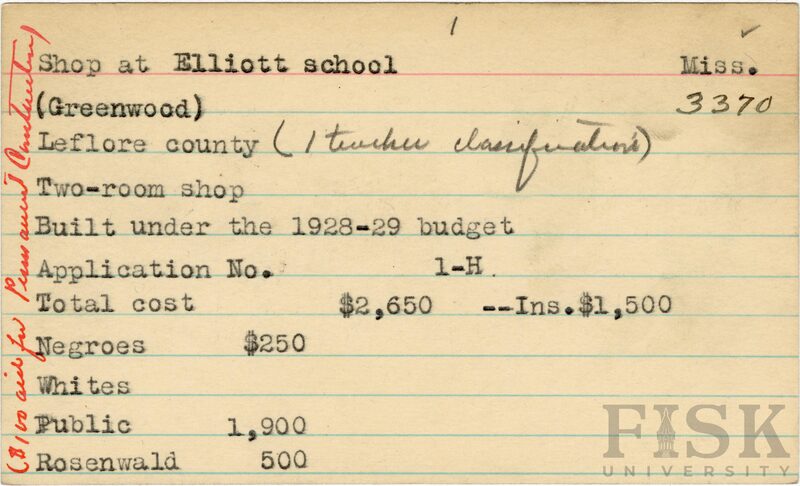 1
Shop at Elliott school Miss.
(Greenwood) 3370
Leflore county (1 teacher classification)
Two-room shop
Built under the 1928-29 budget
Application No. 1-H
Total cost $2,650 --Ins.$1,500
Negroes $250
Whites
Public 1,900
Rosenwald 500
($100 aid for Permanent Construction)
FISK
UNIVERSITY